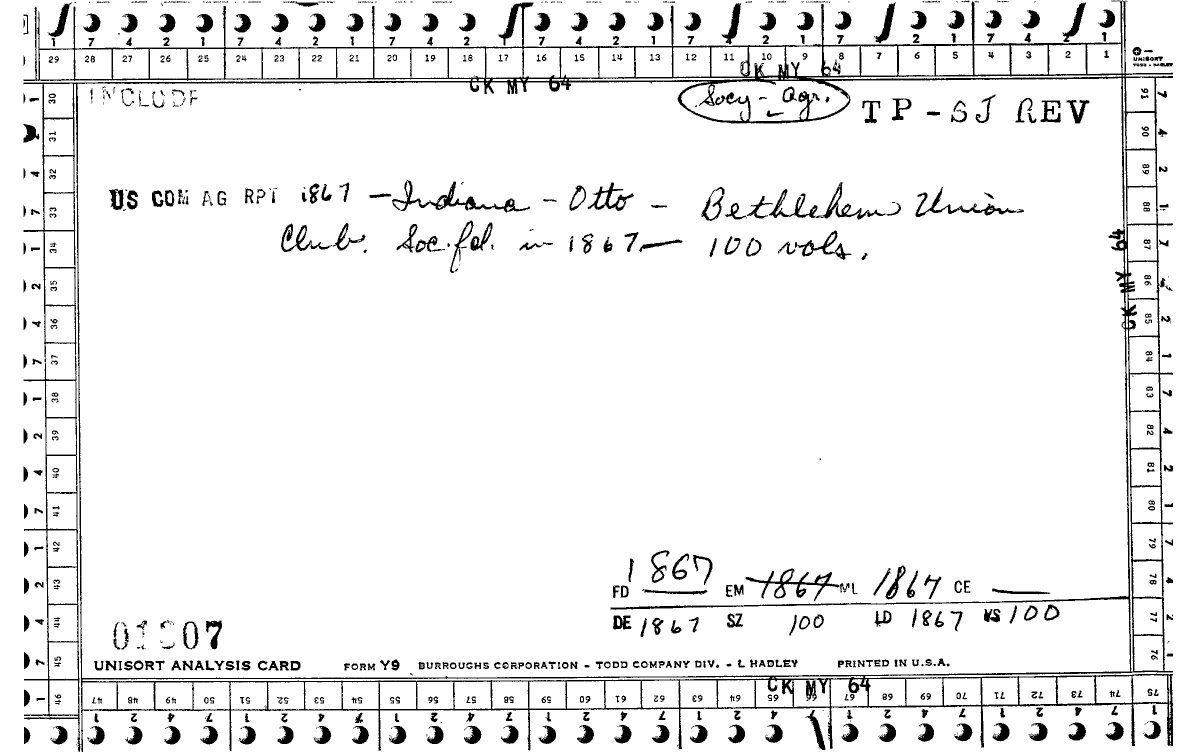 1 7 4 2 1 7 4 2 1 7 4 2 1 7 4 2 1 7 4 2 1 7 4 2 1 7 4 2 1
29 28 27 26 25 24 23 22 21 20 19 18 17 16 15 14 13 12 11 10 9 8 7 6 5 4 3 2 1
UNISORT
CK MY 64 CK MY 64
INCLUDE Socy - Agr. TP - SJ REV
US COM AG RPT 1867 - Indiana - Otto - Bethlehem Union
Club. Soc. fd. in 1867 - 100 vols.
30 31 32 33 34 35 36 37 38 39 40 41 42 43 44 45 46
1 2 4 7 1 2 4 7 1 2 4 7 1 2 4 7 1
91 90 89 88 87 86 85 84 83 82 81 80 79 78 77 76 75
CK MY 64
FD 1867 EM 1867 ML 1867 CE
DE 1867 SZ 100 LD 1867 VS 100
UNISORT ANALYSIS CARD FORM Y9 BURROUGHS CORPORATION - TODD COMPANY DIV. - L HADLEY PRINTED IN U.S.A.
CK MY 64
47 48 49 50 51 52 53 54 55 56 57 58 59 60 61 62 63 64 65 66 67 68 69 70 71 72 73 74